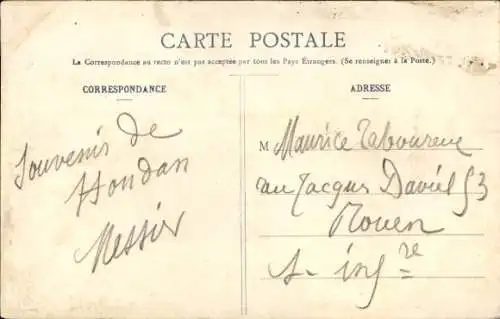 CARTE POSTALE
La Correspondance au recto n'est pas acceptée par tous les Pays Étrangers. (Se renseigner à la Poste.)
CORRESPONDANCE
Souvenir de
Houdan
Messier
ADRESSE
M Maurice
Jacques Daviel 53
Rouen
S- infre